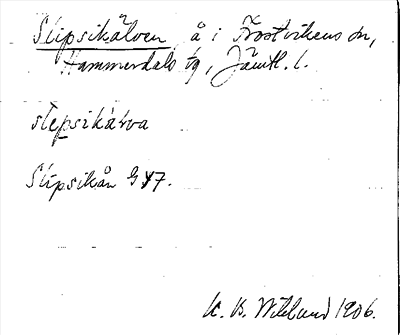 Slipsikälven å i Frostvikens sn,
Hammerdals tg, Jämtl. l.
slepsikarva
Slipsikån G 47.
K. B. Wiklund 1906.